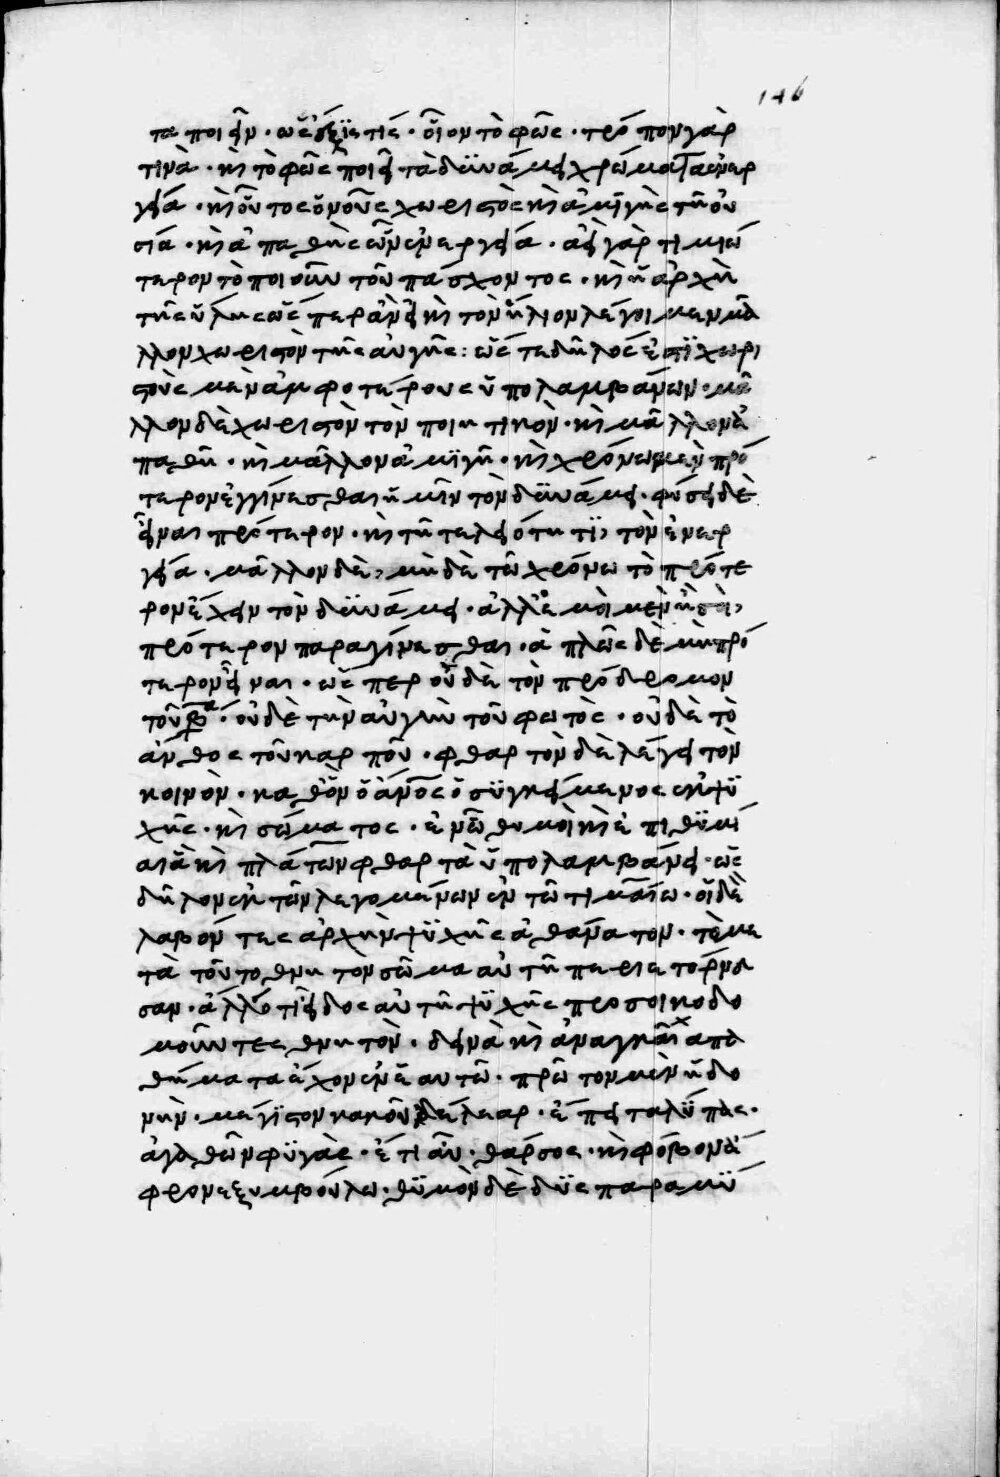 146
τα ποιεῖν· ὡς ἕξις τίς· οἷον τὸ φῶς· τρόπον γάρ
τινα· καὶ τὸ φῶς ποιεῖ τὰ δυνάμει χρώματα ἐνερ
γείᾳ· καὶ οὗτος ὁ νοῦς χωριστὸς καὶ ἀμιγὴς τῇ οὐ
σίᾳ· καὶ ἀπαθὴς ὢν ἐνεργείᾳ· ἀεὶ γὰρ τιμιώ
τερον τὸ ποιοῦν τοῦ πάσχοντος· καὶ ἡ ἀρχὴ
τῆς ὕλης ὥσπερ ἂν εἰ καὶ τὸν ἥλιον λέγοιμεν μᾶ
λλον χωριστὸν τῆς αὐγῆς: ὥστε δῆλός ἐστι χωρι
στοὺς μὲν ἀμφοτέρους ὑπολαμβάνων· μᾶ
λλον δὲ χωριστὸν τὸν ποιητικὸν· καὶ μᾶλλον ἀ
παθῆ· καὶ μᾶλλον ἀμιγῆ· καὶ χρόνῳ μὲν πρό
τερον ἐγγίνεσθαι ἡμῖν τὸν δυνάμει· φύσει δὲ
εἶναι πρότερον· καὶ τῇ τελειότητι, τὸν ἐνερ
γείᾳ· μᾶλλον δὲ, μηδὲ τῷ χρόνῳ τὸ πρότε
ρον ἔχειν τὸν δυνάμει· ἀλλ' ἐμοὶ μὲν ἢ σοὶ,
πρότερον παραγίνεσθαι· ἁπλῶς δὲ μὴ πρό
τερον εἶναι· ὥσπερ οὐδὲ τὸν πρόδρομον
τοῦ · οὐδὲ τὴν αὐγὴν τοῦ φωτὸς· οὐδὲ τὸ
ἄνθος τοῦ καρποῦ· φθαρτὸν δὲ λέγει τὸν
κοινὸν· καθ' ὃν ὁ ἄνος ὁ συγκείμενος ἐκ ψυ
χῆς· καὶ σώματος· ἐν ᾧ θυμοὶ καὶ ἐπιθυμί
αι ἃ καὶ πλάτων φθαρτὰ ὑπολαμβάνει· ὡς
δῆλον ἐκ τῶν λεγομένων ἐν τῷ τιμαίῳ· οἱ δὲ
λαβόντες ἀρχὴν ψυχῆς ἀθάνατον· τὸ με
τὰ τοῦτο θνητὸν σῶμα αὐτῇ περιετόρνευ
σαν· ἄλλό τι εἶδος αὐτῇ ψυχῆς προσοικοδο
μοῦντες θνητὸν· δεινὰ καὶ ἀναγκαῖα πα
θήματα ἔχον ἐν ἑαυτῷ· πρῶτον μὲν ἡδο
νὴν· μέγιστον κακοῦ δέλεαρ· ἔπειτα λύπας·
ἀγαθῶν φυγάς· ἔτι αὖ· θάρσος· καὶ φόβον ἄ
φρονε ξυμβούλω· θυμὸν δὲ δυσπαραμύ